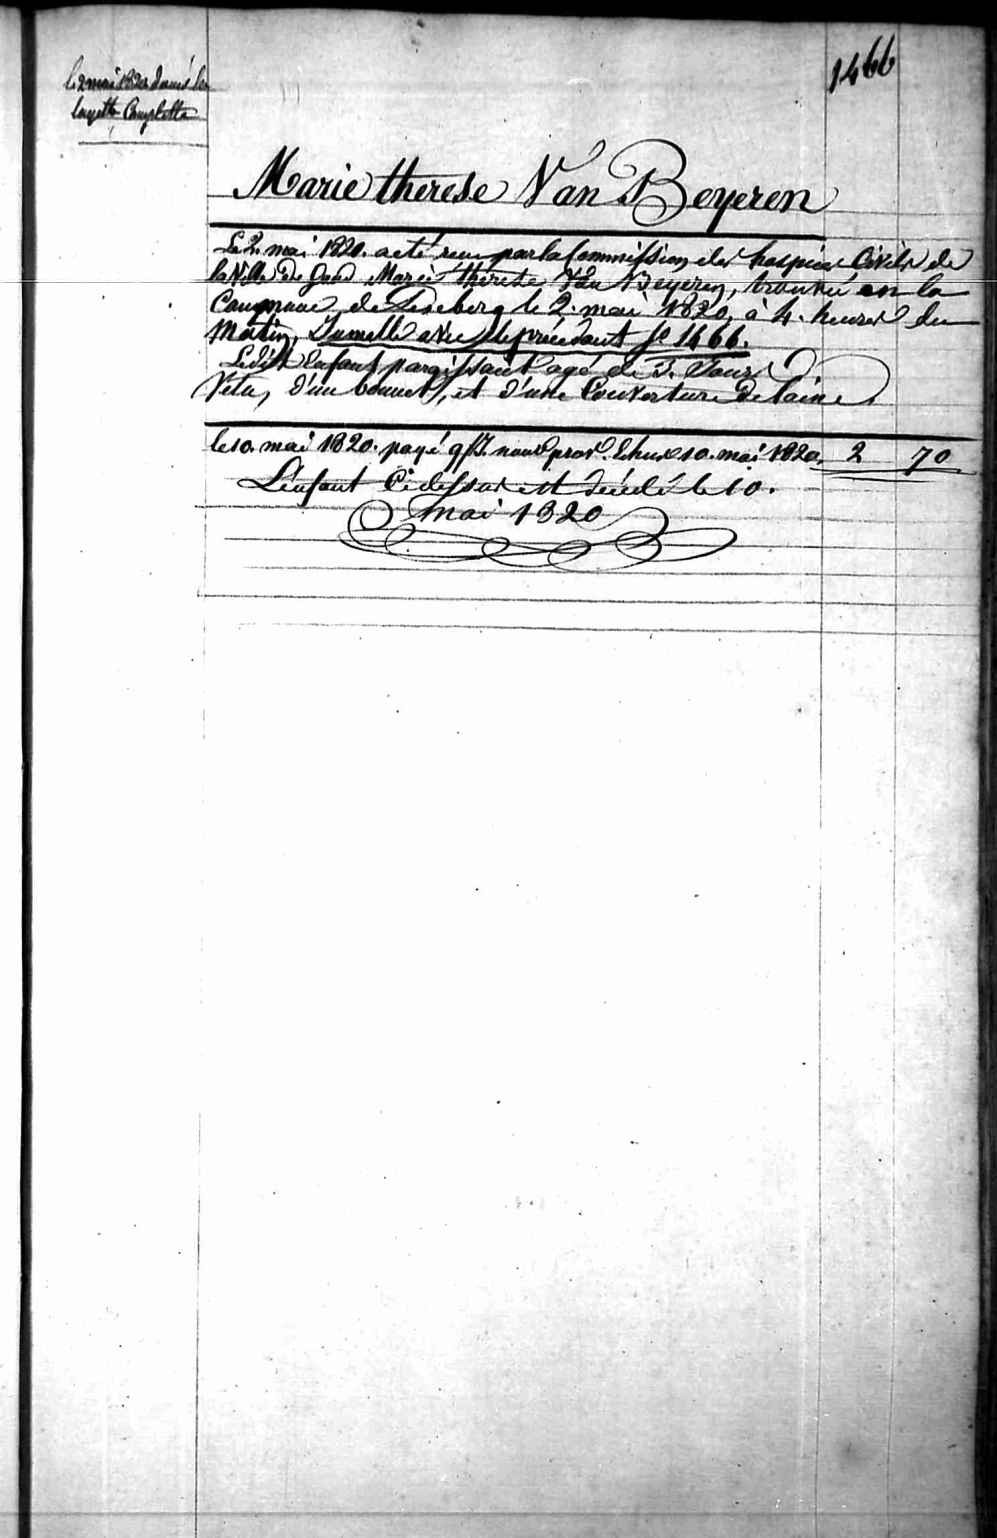 1466
le 2 mai 1820 donné la
layette Complette
Marie therese Van Beyeren
Le 2. mai 1820. a eté reçu par la Commission des hospices Civils de
la Ville de Gand Marie thérese Van Beyeren, trouvée en la
Commune de Ledeberg le 2. mai 1820, à 4. heures du
Matin, Jumelle avec le précédent f.o 1466.
Ledit Enfant paraissant agé de 2. Jours
Vetu, d'un bonnet, et d'une Couverture de laine.
le 10. mai 1820. payé nourr. prov. Echu 10. mai 1820. 2 70
L'enfant Ci dessus est décédé le 10.
mai 1820